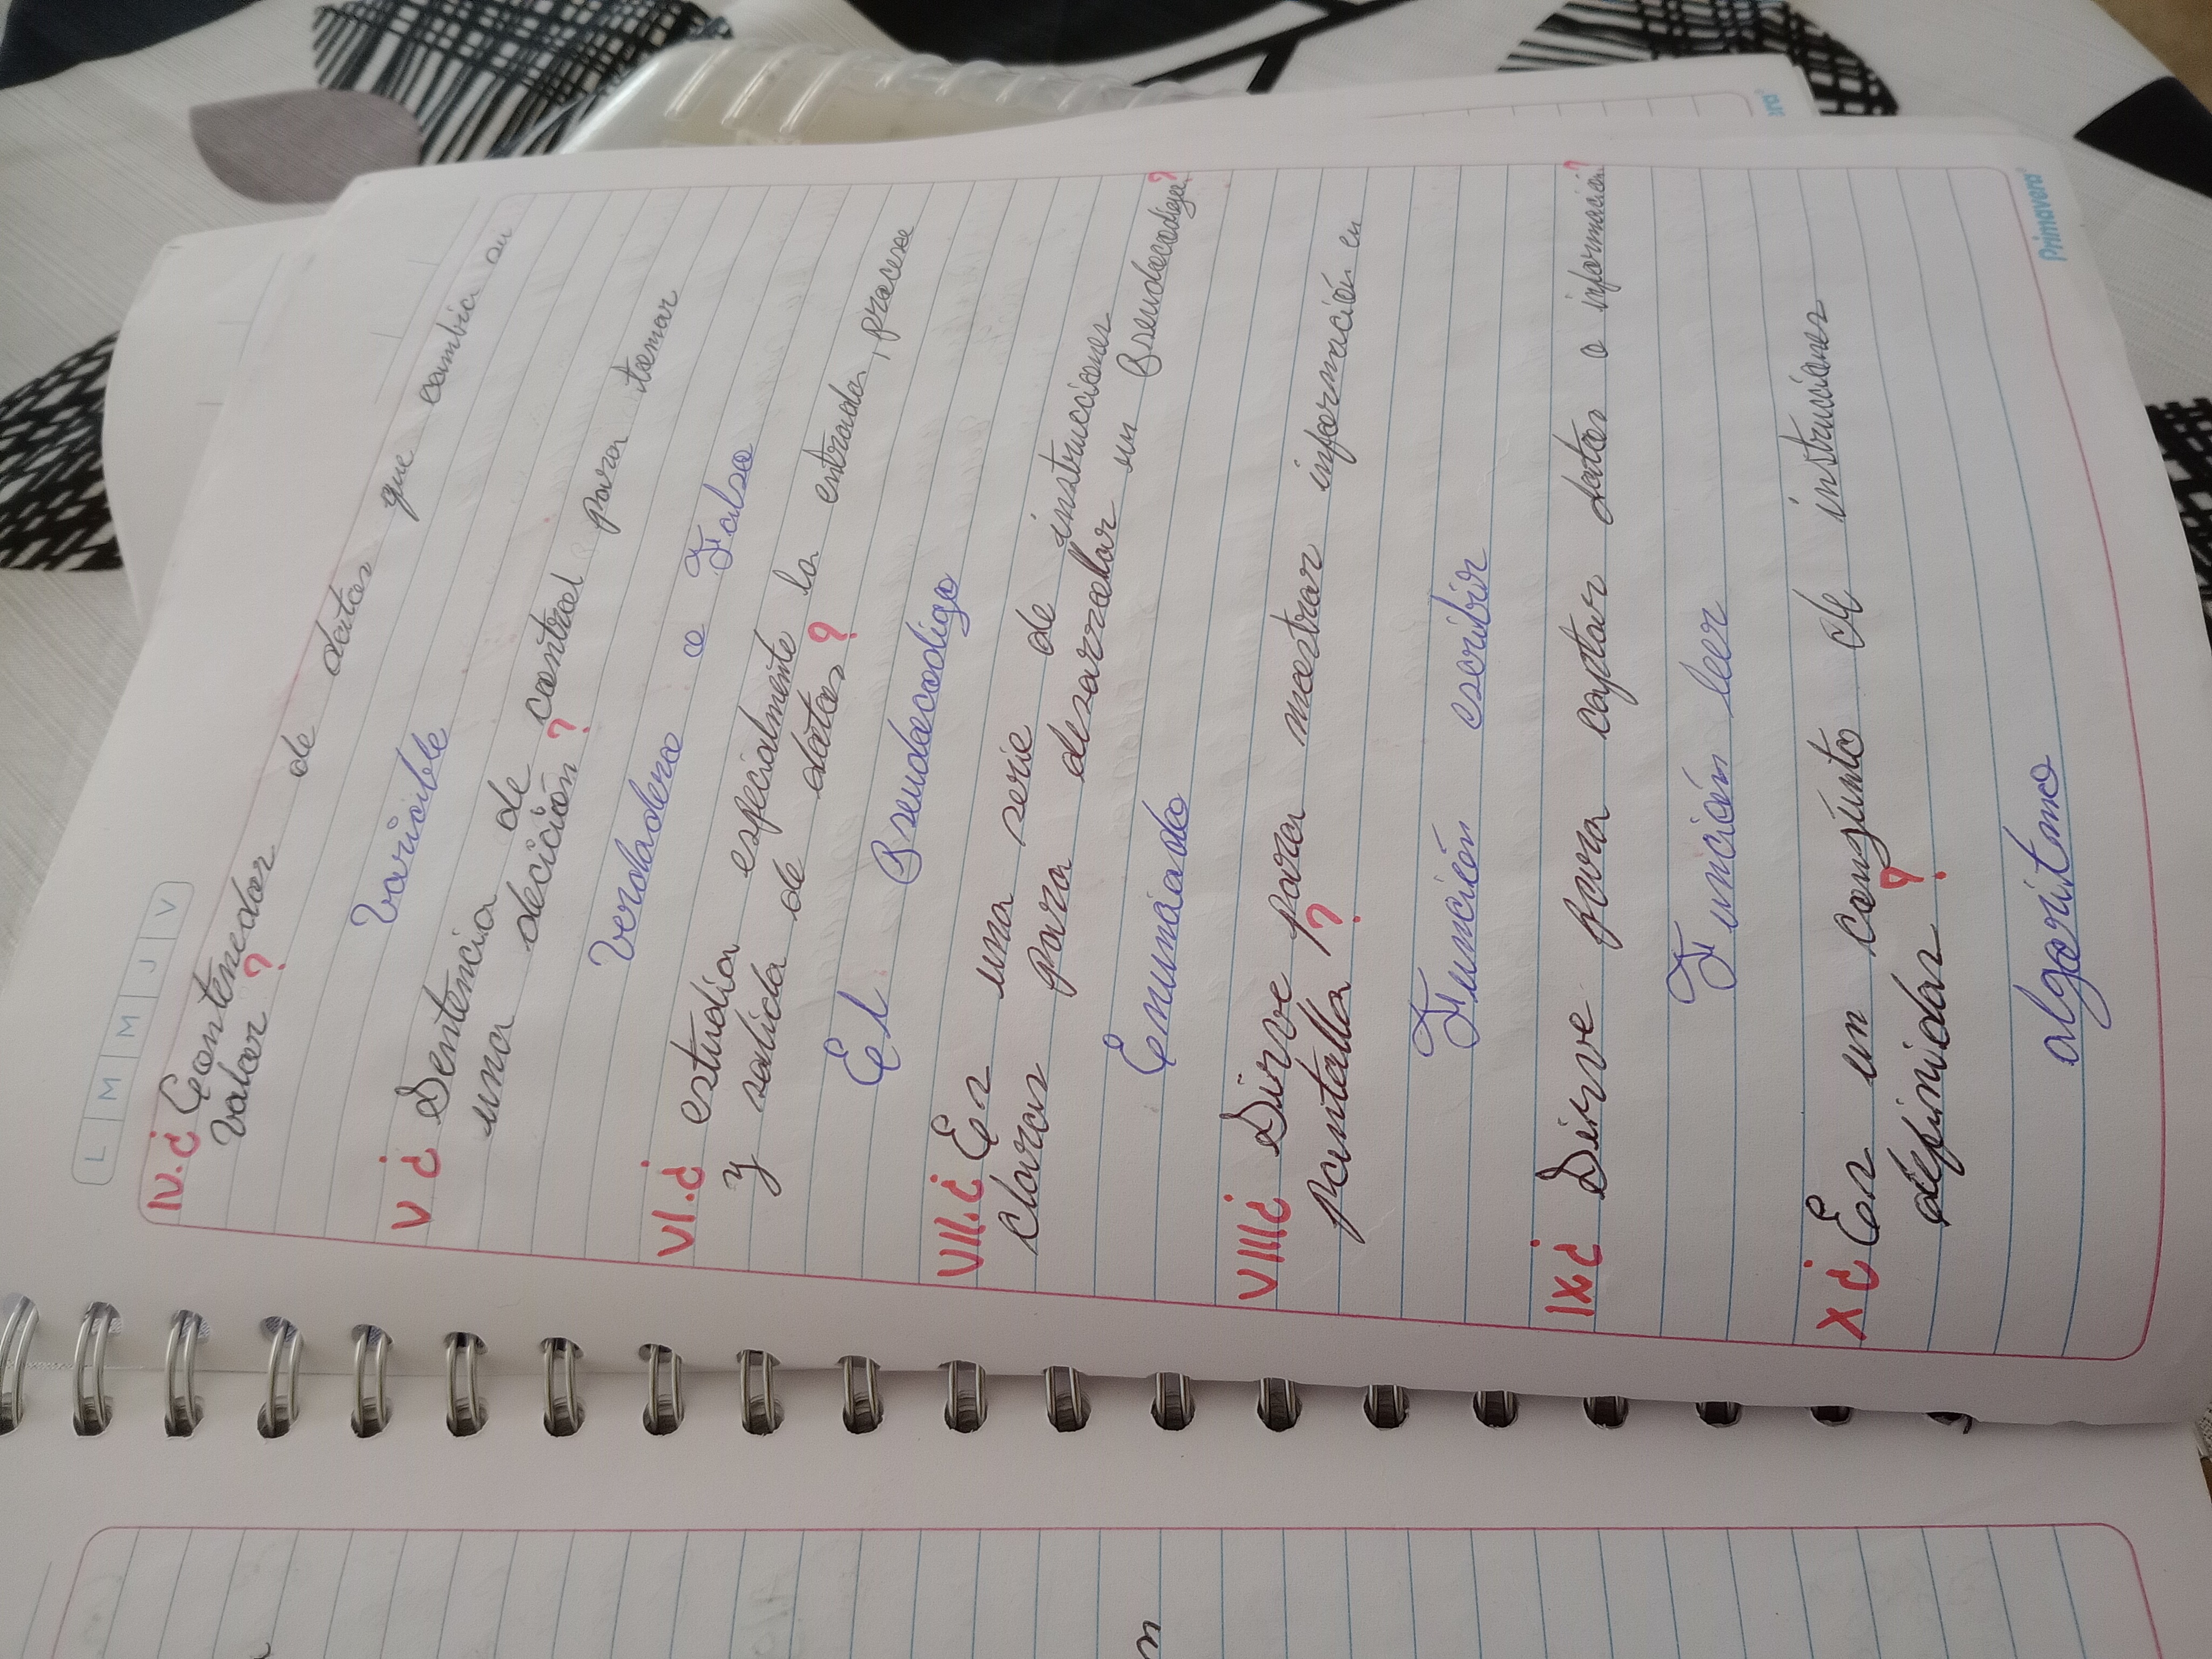 L M M J V
IV.¿ Contenedor de datos que cambia su
valor?
Variable
V ¿ Sentencia de control para tomar
una decición?
Verdadero o Falso
VI.¿ estudia especialmente la entrada, proceso
y salida de datos?
El Pseudocodigo
VII.¿ Es una serie de instrucciones
claras para desarrollar un Pseudocodigo?
Enunciado
VIII¿ Sirve para mostrar información en
pantalla?
Función escribir
IX¿ Sirve para captar datos o información?
Función leer
X ¿ Es un conjunto de instruciones
definidas?
algoritmo
Primavera